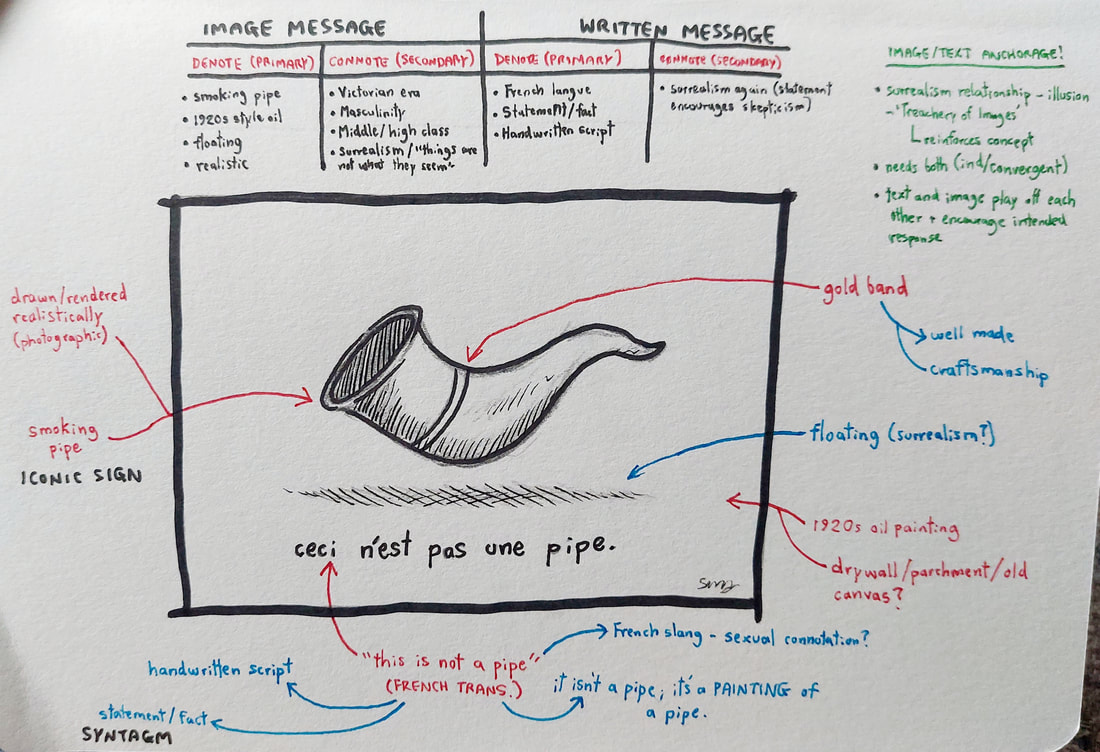 IMAGE MESSAGE
WRITTEN MESSAGE
DENOTE (PRIMARY)
CONNOTE (SECONDARY)
DENOTE (PRIMARY)
CONNOTE (SECONDARY)
• smoking pipe
• 1920s style oil
• floating
• realistic
• Victorian era
• Masculinity
• Middle/high class
• Surrealism/"things are
not what they seem"
• French langue
• Statement/fact
• Handwritten script
• surrealism again (statement
encourages skepticism)
IMAGE/TEXT ANCHORAGE!
• surrealism relationship - illusion
- 'Treachery of Images'
reinforces concept
• needs both (ind/convergent)
• text and image play off each
other + encourage intended
response
drawn/rendered
realistically
(photographic)
smoking
pipe
ICONIC SIGN
gold band
well made
craftsmanship
floating (surrealism?)
1920s oil painting
drywall/parchment/old
canvas?
ceci n'est pas une pipe.
"this is not a pipe"
(FRENCH TRANS.)
French slang - sexual connotation?
it isn't a pipe; it's a PAINTING of
a pipe.
handwritten script
statement/fact
SYNTAGM